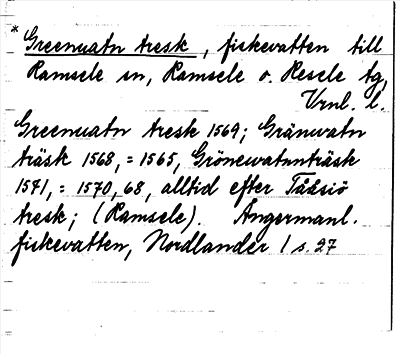 * Greenuatn tresk, fiskevatten till
Ramsele sn, Ramsele o. Resele tg,
Vrnl. l.
Greenuatn tresk 1569; Gränwatn
träsk 1568, = 1565, Grönewatnnträsk
1571, = 1570, 68, alltid efter Tässiö
tresk; (Ramsele). Ångermanl.
fiskevatten, Nordlander 1 s. 27